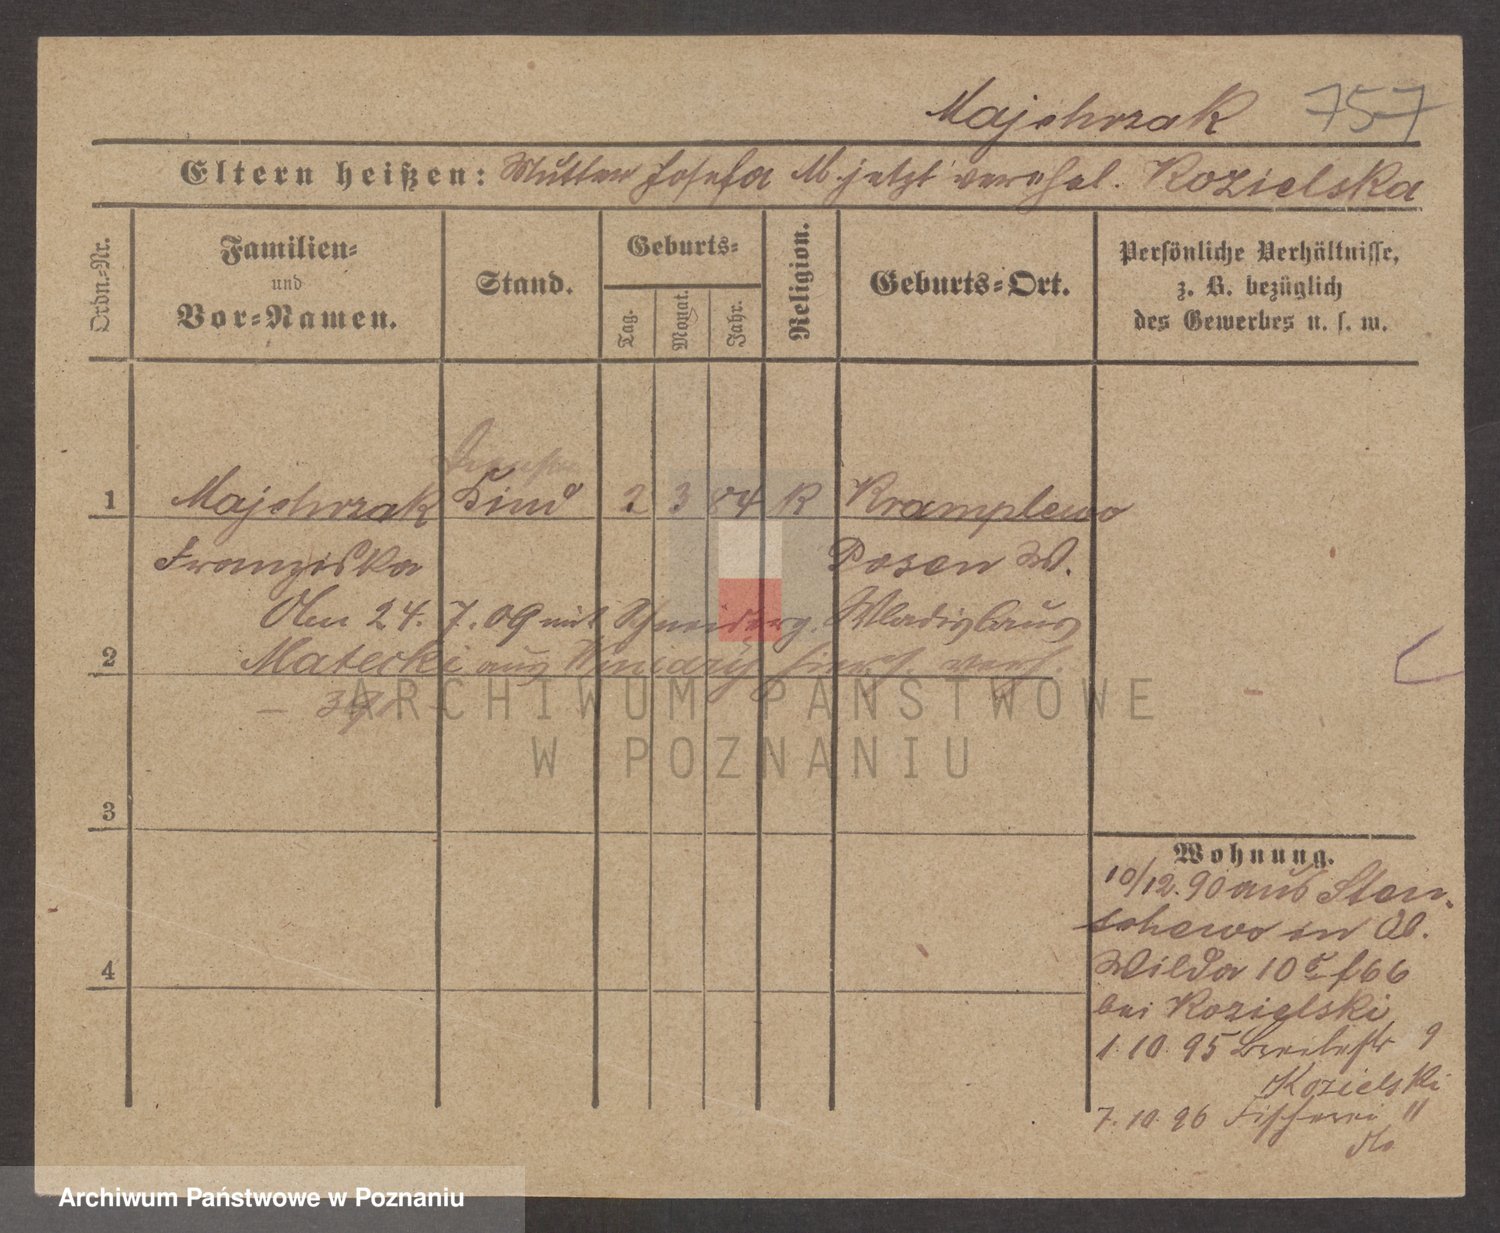 Majchrzak 757
Eltern heißen: Mutter Josefa M. jetzt verehel. Kozielska
Ordn.-Nr.
Familien-
und
Vor-Namen.
Stand.
Geburts-
Tag.
Monat.
Jahr.
Religion.
Geburts-Ort.
Persönliche Verhältnisse,
z. B. bezüglich
des Gewerbes u. s. w.
1 Majchrzak Kind 2 3 84 K Kramplewo
Franziska Posen W.
Am 24. 7. 09 mit Schneiderg. Wladislaus
2 Matecki aus
3
4
Wohnung.
10/12. 90 aus Sten-
schewo in Ob.
Wilda 10 f 66
bei Kozielski
1. 10. 95 Breitestr 9
Kozielski
7. 10. 96 Fischerei 11
ARCHIWUM PAŃSTWOWE
W POZNANIU
Archiwum Państwowe w Poznaniu